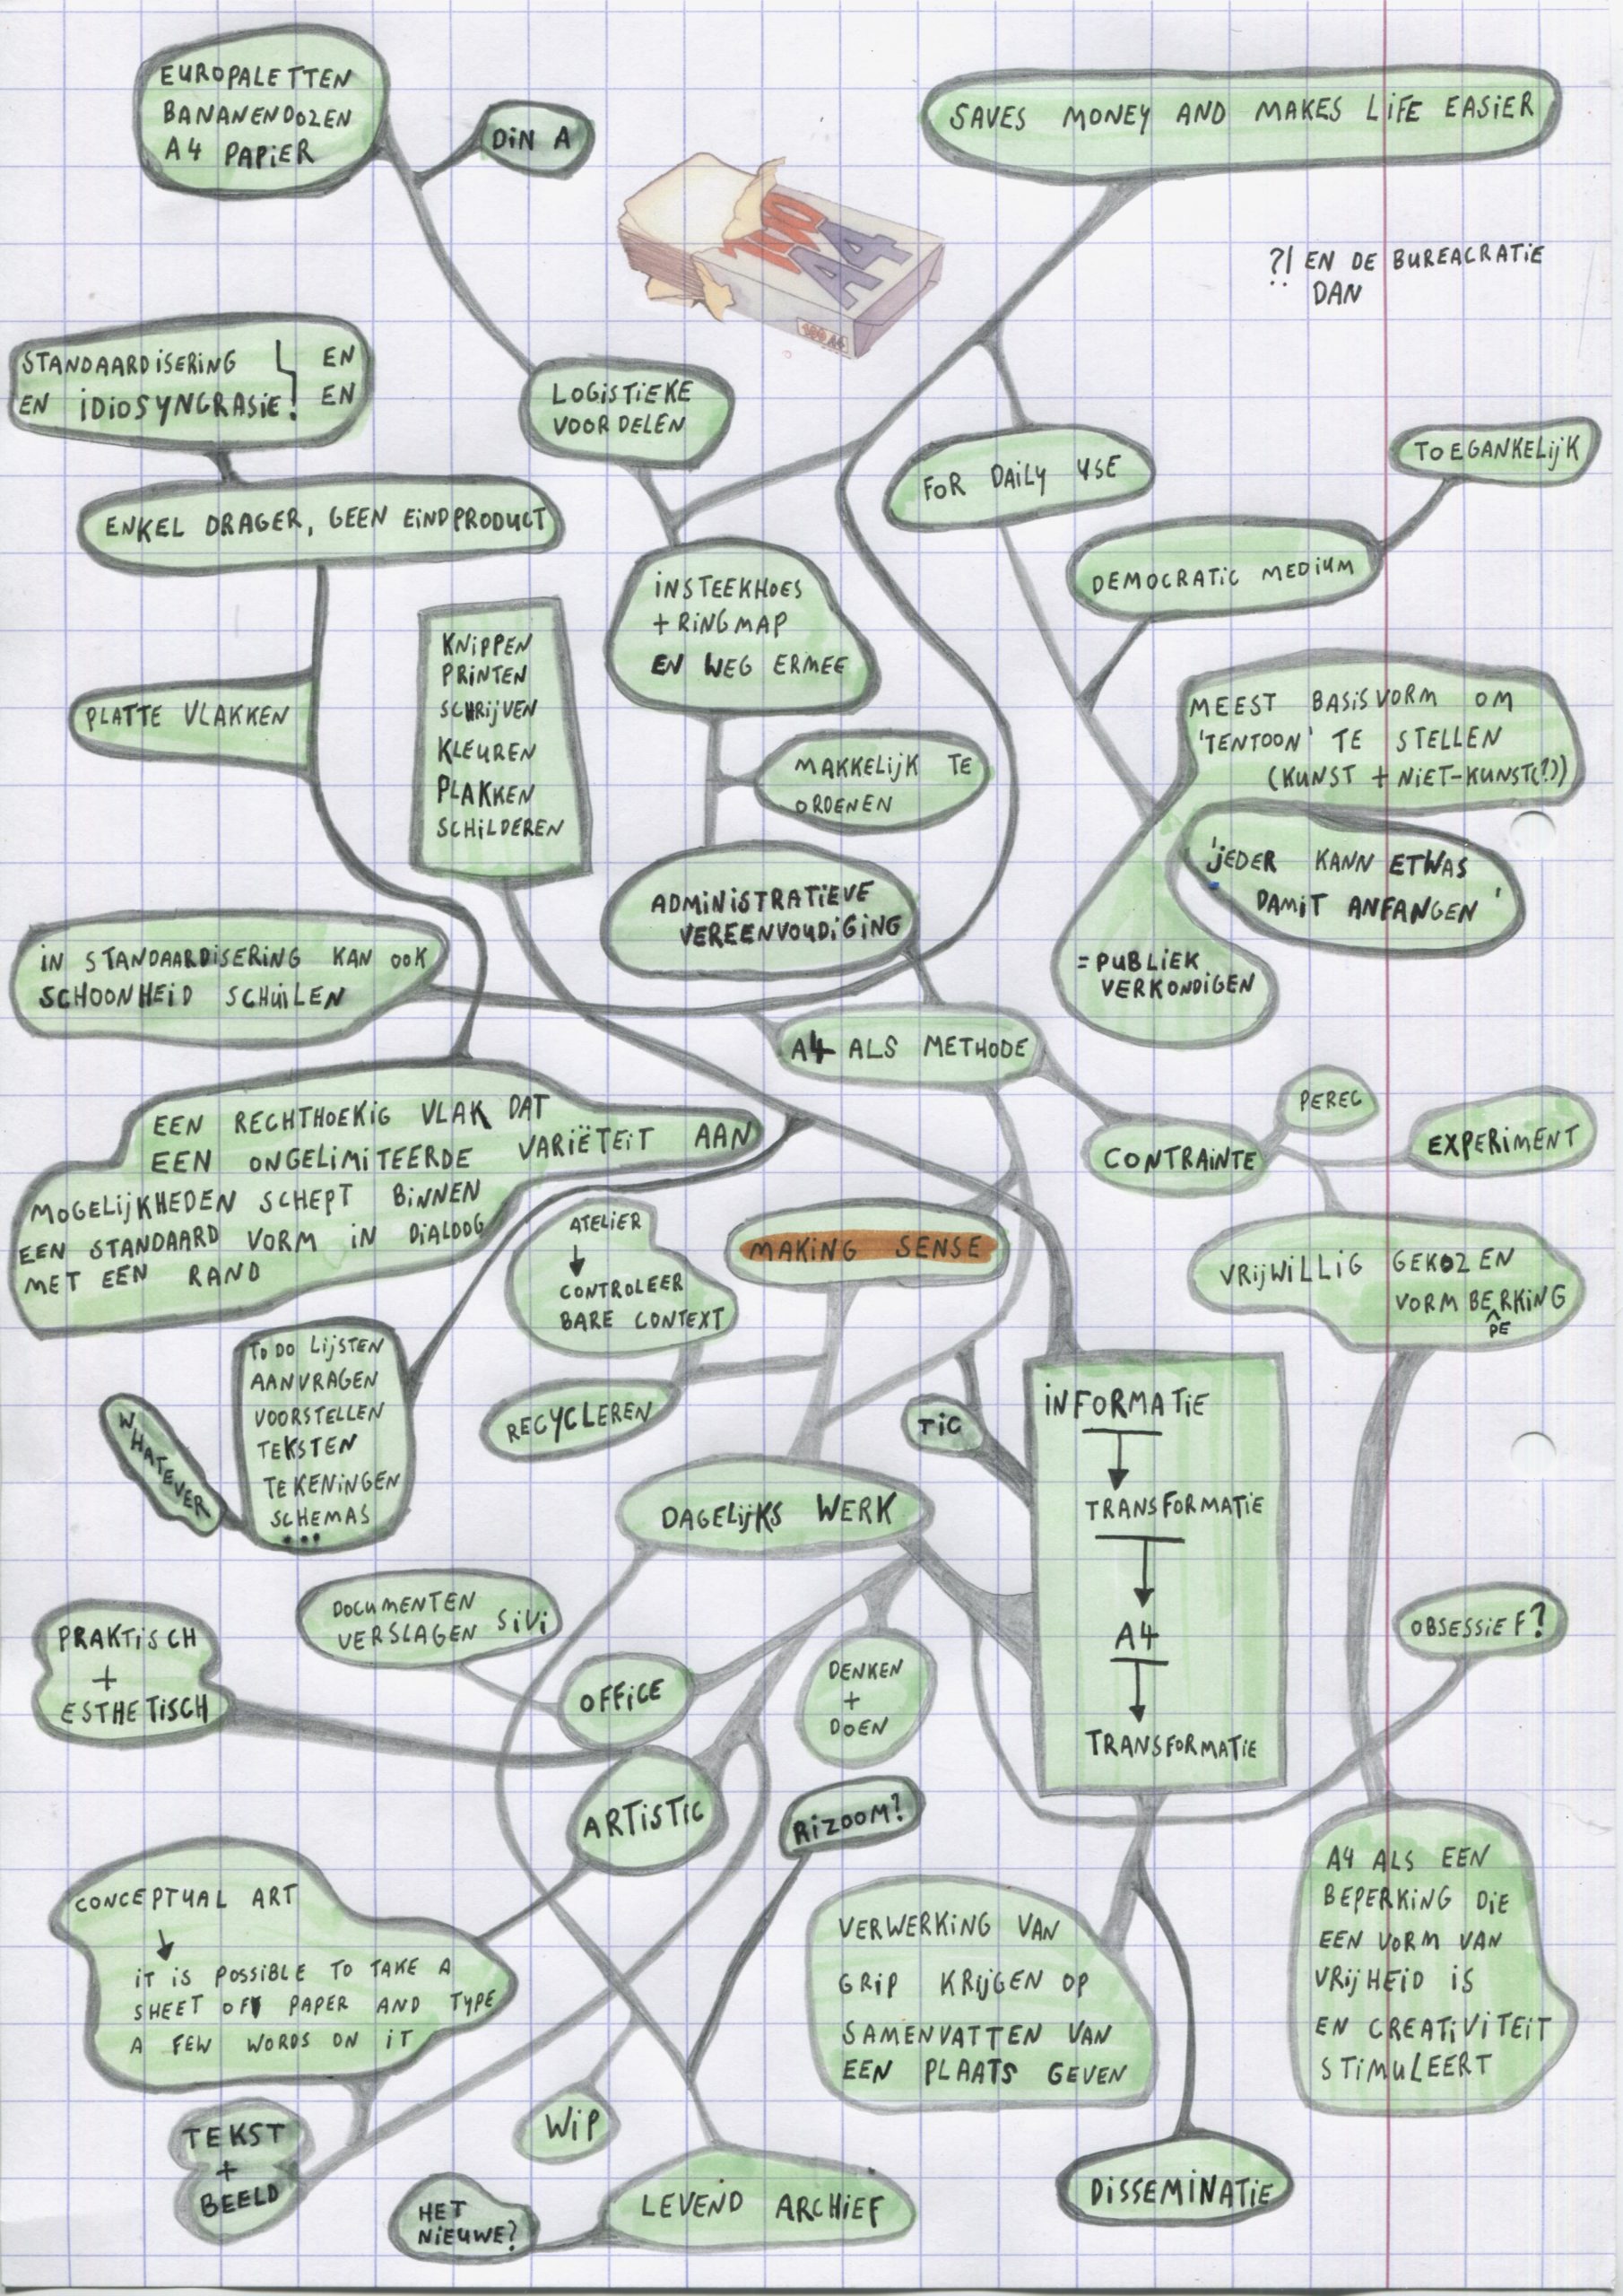 EUROPALETTEN
BANANENDOZEN
A4 PAPIER
DIN A
SAVES MONEY AND MAKES LIFE EASIER
100
A4
?! EN DE BUREACRATIE
DAN
STANDAARDISERING EN
EN IDIOSYNCRASIE! EN
LOGISTIEKE
VOORDELEN
FOR DAILY USE
TOEGANKELIJK
ENKEL DRAGER, GEEN EINDPRODUCT
DEMOCRATIC MEDIUM
INSTEEKHOES
+ RINGMAP
EN WEG ERMEE
KNIPPEN
PRINTEN
SCHRIJVEN
KLEUREN
PLAKKEN
SCHILDEREN
PLATTE VLAKKEN
MAKKELIJK TE
ORDENEN
MEEST BASISVORM OM
'TENTOON' TE STELLEN
(KUNST + NIET-KUNST(?))
'JEDER KANN ETWAS
DAMIT ANFANGEN'
= PUBLIEK
VERKONDIGEN
ADMINISTRATIEVE
VEREENVOUDIGING
IN STANDAARDISERING KAN OOK
SCHOONHEID SCHUILEN
A4 ALS METHODE
PEREC
CONTRAINTE
EXPERIMENT
EEN RECHTHOEKIG VLAK DAT
EEN ONGELIMITEERDE VARIËTEIT AAN
MOGELIJKHEDEN SCHEPT BINNEN
EEN STANDAARD VORM IN DIALOOG
MET EEN RAND
ATELIER
CONTROLEER
BARE CONTEXT
MAKING SENSE
VRIJWILLIG GEKOZEN
VORM BERKING
PE
TO DO LIJSTEN
AANVRAGEN
VOORSTELLEN
TEKSTEN
TEKENINGEN
SCHEMAS
...
WHATEVER
RECYCLEREN
TIC
INFORMATIE
TRANSFORMATIE
A4
TRANSFORMATIE
DAGELIJKS WERK
DOCUMENTEN
VERSLAGEN SIVI
PRAKTISCH
+
ESTHETISCH
OFFICE
DENKEN
+
DOEN
OBSESSIEF?
ARTISTIC
RIZOOM?
CONCEPTUAL ART
IT IS POSSIBLE TO TAKE A
SHEET OF PAPER AND TYPE
A FEW WORDS ON IT
VERWERKING VAN
GRIP KRIJGEN OP
SAMENVATTEN VAN
EEN PLAATS GEVEN
A4 ALS EEN
BEPERKING DIE
EEN VORM VAN
VRIJHEID IS
EN CREATIVITEIT
STIMULEERT
TEKST
+
BEELD
WIP
HET
NIEUWE?
LEVEND ARCHIEF
DISSEMINATIE